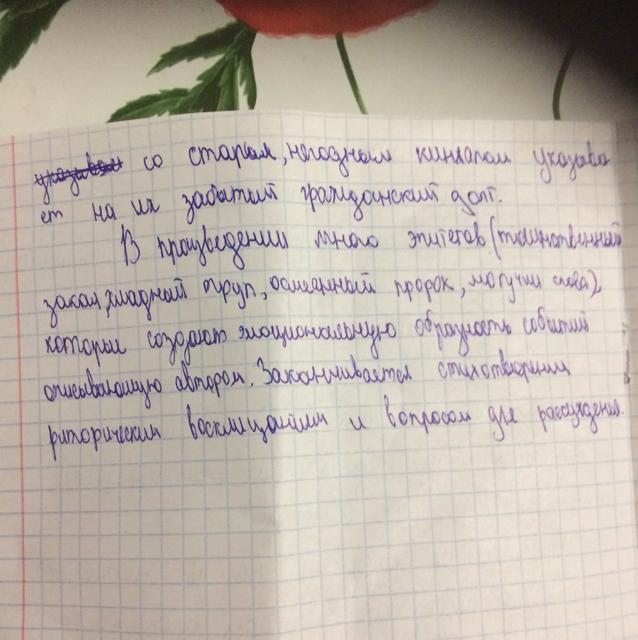 со старым, негодным кинжалом указыва
ет на их забытый гражданский долг.
В произведении много эпитетов (таинственный
закал, хладный труп, осмеянный пророк, могучих слова),
которые создают эмоциональную образность событий
описывающую автором. Заканчивается стихотворение
риторическим восклицанием и вопросом для рассуждения.